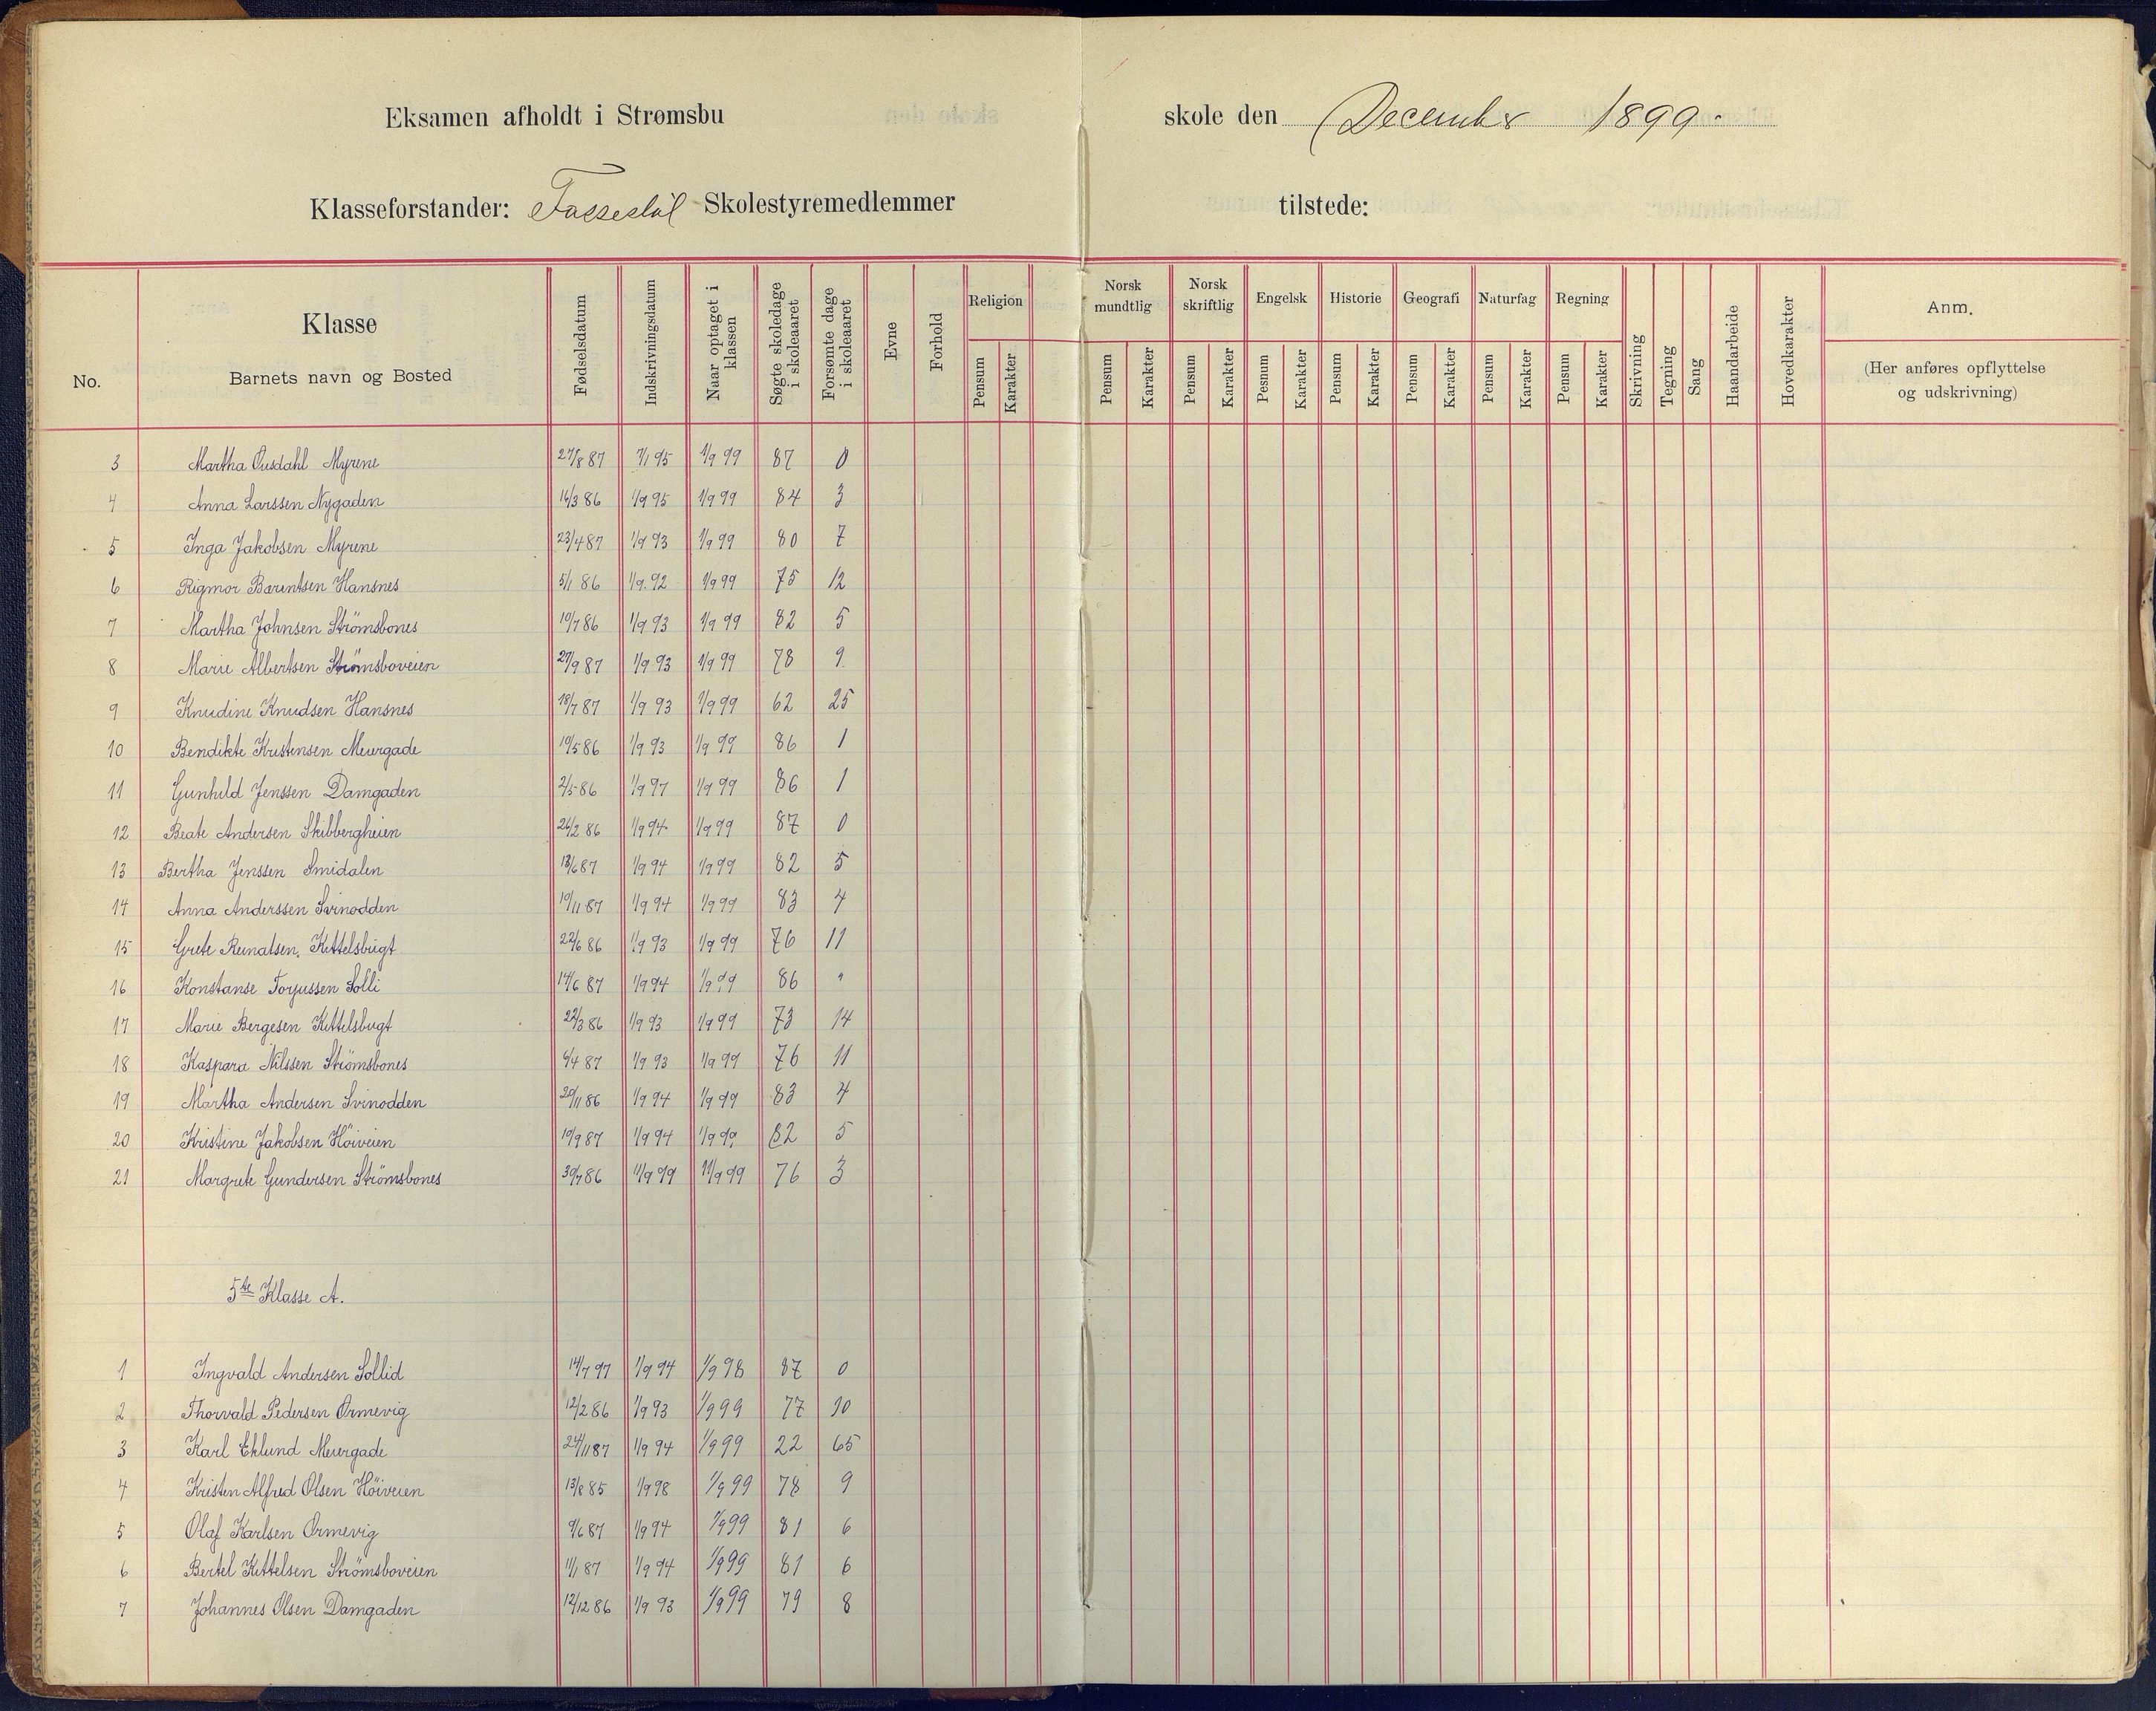 Eksamen afholdt i Strømsbu skole den December 1899.
Klasseforstander: Skolestyremedlemmer tilstede:
No. Klasse Barnets navn og Bosted Fødselsdatum Indskrivningsdatum Naar optaget i klassen Søgte skoledage i skoleaaret Forsømte dage i skoleaaret Evne Forhold Religion Norsk mundtlig Norsk skriftlig Engelsk Historie Geografi Naturfag Regning Skrivning Tegning Sang Haandarbeide Hovedkarakter Anm.
(Her anføres opflyttelse og udskrivning)
Pensum Karakter Pensum Karakter Pensum Karakter Pesnum Karakter Pensum Karakter Pensum Karakter Pensum Karakter Pensum Karakter
3 Martha Myrene 27/8 87 7/1 95 1/9 99 87 0
4 Anna Larssen Nygaden 16/3 86 1/9 95 1/9 99 84 3
5 Inga Jakobsen Myrene 23/4 87 1/9 93 1/9 99 80 7
6 Rigmor Barentsen Hansnes 5/1 86 1/9 92 1/9 99 75 12
7 Martha Johnsen Strömsbones 10/7 86 1/9 93 1/9 99 82 5
8 Marie Albertsen Strömsboveien 27/9 87 1/9 93 1/9 99 78 9
9 Knudine Knudsen Hansnes 18/7 87 1/9 93 1/9 99 62 25
10 Bendikte Kristensen Meiergade 10/5 86 1/9 93 1/9 99 86 1
11 Gunhild Jenssen Damgaden 2/5 86 1/9 97 1/9 99 86 1
12 Beate Andersen Skibbergheien 26/2 86 1/9 94 1/9 99 87 0
13 Bertha Jenssen Smidalen 13/6 87 1/9 94 1/9 99 82 5
14 Anna Anderssen Svinodden 10/11 87 1/9 94 1/9 99 83 4
15 Grete Kittelsbugt 22/6 86 1/9 93 1/9 99 76 11
16 Konstanse Torjussen Solli 14/6 87 1/9 94 1/9 99 86 "
17 Marie Bergesen Kittelsbugt 22/3 86 1/9 93 1/9 99 73 14
18 Kaspara Nilssen Strömsbones 6/4 87 1/9 93 1/9 99 76 11
19 Martha Andersen Svinodden 20/11 86 1/9 94 1/9 99 83 4
20 Kristine Jakobsen Höiveien 10/9 87 1/9 94 1/9 99 82 5
21 Margrete Gundersen Strömsbones 30/7 86 11/9 99 11/9 99 76 3
5te Klasse A.
1 Ingvald Andersen Sollid 14/7 97 1/9 94 1/9 98 87 0
2 Thorvald Pedersen Ormevig 12/2 86 1/9 93 1/9 99 77 10
3 Karl Eklund Meiergade 24/11 87 1/9 94 1/9 99 22 65
4 Kristen Alfred Olsen Höiveien 13/8 85 1/9 98 1/9 99 78 9
5 Olaf Karlsen Ormevig 9/6 87 1/9 94 1/9 99 81 6
6 Bertel Kittelsen Strömsboveien 11/1 87 1/9 94 1/9 99 81 6
7 Johannes Olsen Damgaden 12/12 86 1/9 93 1/9 99 79 8